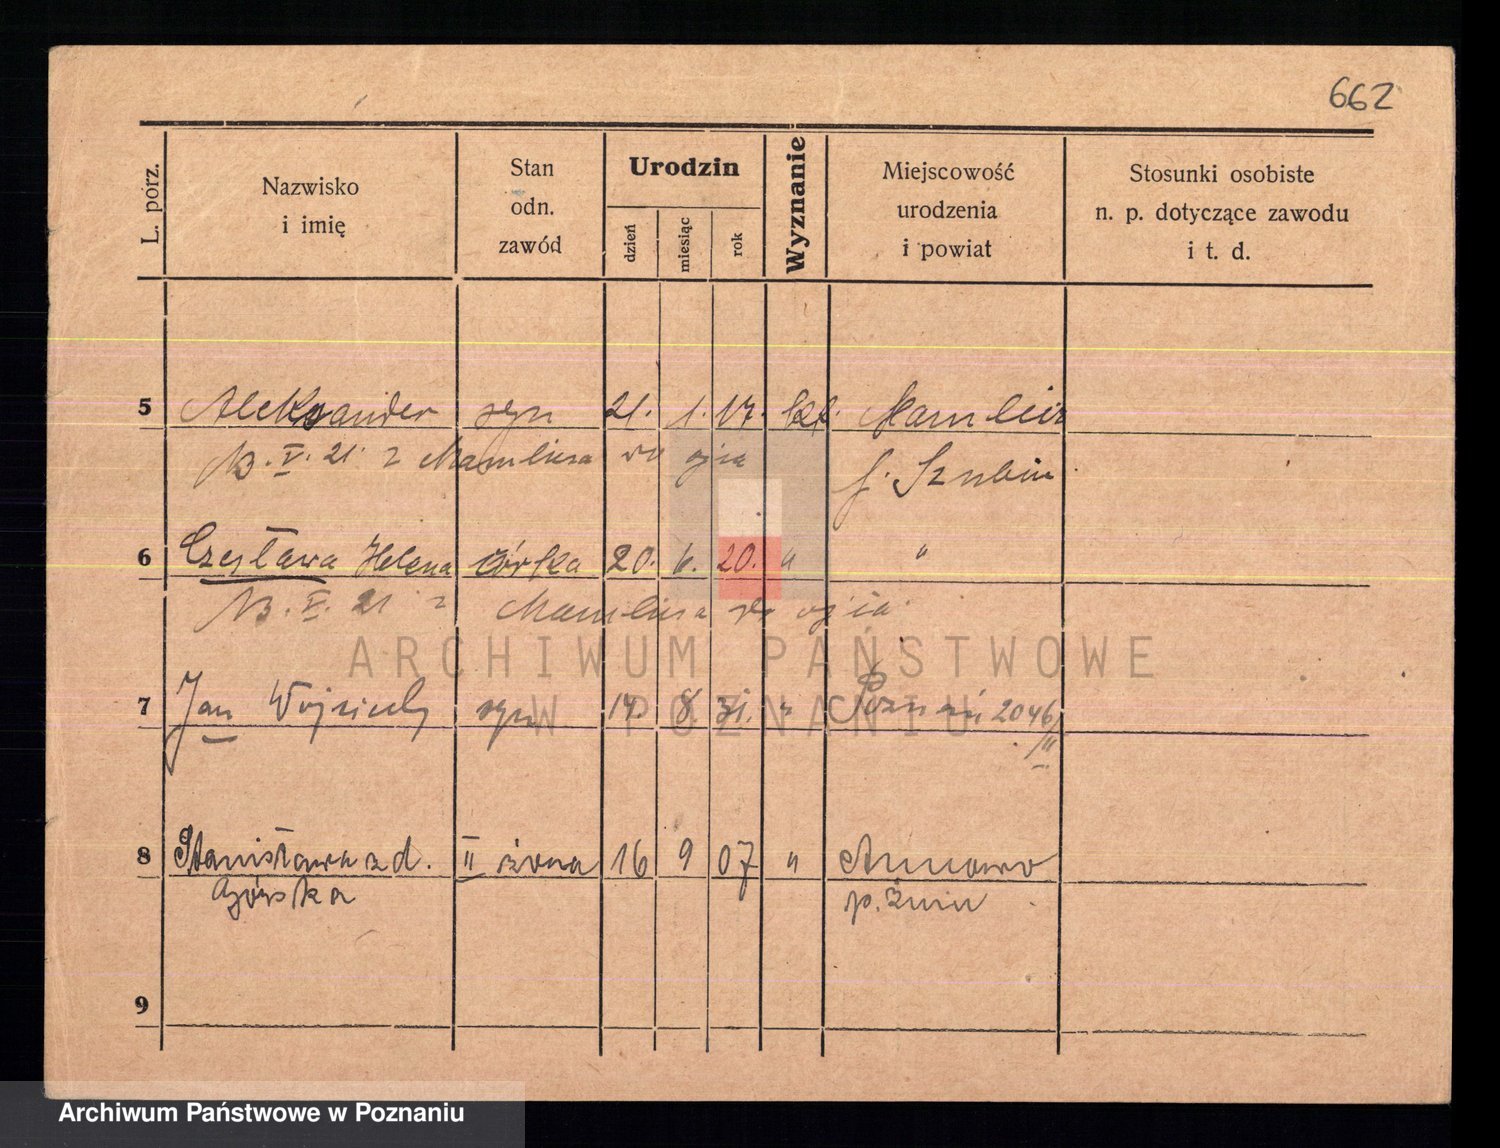 662
L. porz.
Nazwisko
i imię
Stan
odn.
zawód
Urodzin
dzień
miesiąc
rok
Wyznanie
Miejscowość
urodzenia
i powiat
Stosunki osobiste
n. p. dotyczące zawodu
i t. d.
5 Aleksander syn 21. 1. 17. kt. Mamlicz
13. V. 21. z Mamlicza do ojca
p. Szubin
6 Czesława Helena córka 20. 6. 20. " "
13. V. 21 z Mamlicza do ojca
7 Jan Wojciech syn 14. 8 31. " Poznań 2046/
II
8 Stanisława z d. II żona 16 9 07 " Annowo
Górska p. Żnin
9
ARCHIWUM PAŃSTWOWE
W POZNANIU
Archiwum Państwowe w Poznaniu